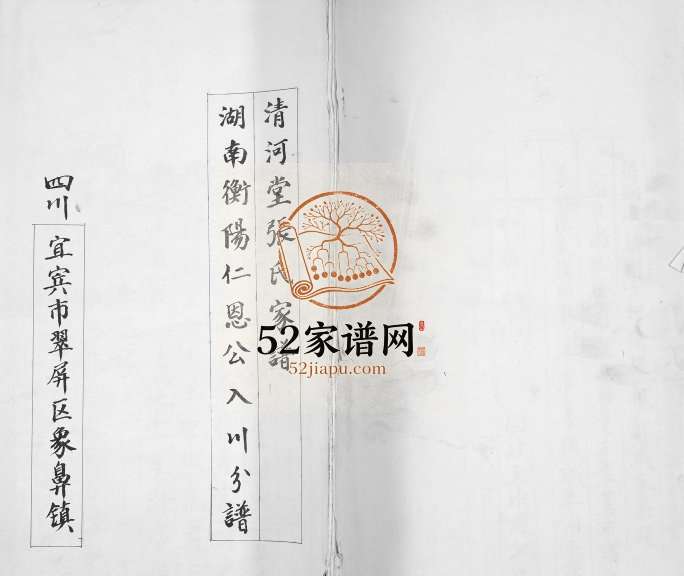 清河堂張氏家譜
湖南衡陽仁恩公入川分譜
四川
宜宾市翠屏区象鼻镇
52家谱网
52jiapu.com